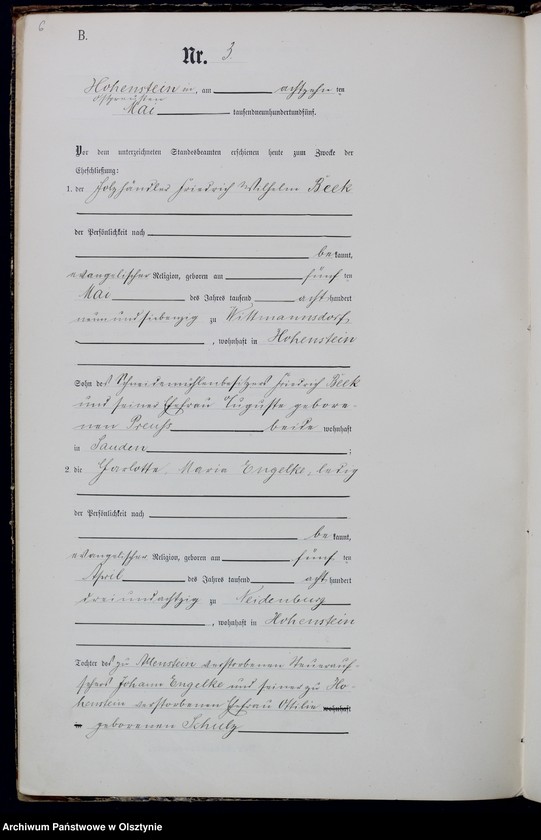 6
B.
Nr. 3.
Hohenstein in, am achtzehn ten
Ostpreußen
Mai tausendneunhundertundfünf.
Vor dem unterzeichneten Standesbeamten erschienen heute zum Zwecke der
Eheschließung:
1. der Holzhändler Friedrich Wilhelm Beek
der Persönlichkeit nach
be kannt,
evangelischer Religion, geboren am fünf ten
Mai des Jahres tausend acht hundert
neunundsiebenzig zu Wittmannsdorf,
, wohnhaft in Hohenstein
Sohn des Schneidemühlenbesitzers Friedrich Beek
und seiner Ehefrau Auguste gebore-
nen Preuß beide wohnhaft
in Sauden ;
2. die Charlotte Maria Engelke, ledig
der Persönlichkeit nach
be kannt,
evangelischer Religion, geboren am fünf ten
April des Jahres tausend acht hundert
dreiundachtzig zu Neidenburg
, wohnhaft in Hohenstein
Tochter des zu Allenstein verstorbenen Steuerauf-
sehers Johann Engelke und seiner zu Ho-
henstein verstorbenen Ehefrau Ottilie wohnhaft
in geborenen Schulz
Archiwum Państwowe w Olsztynie